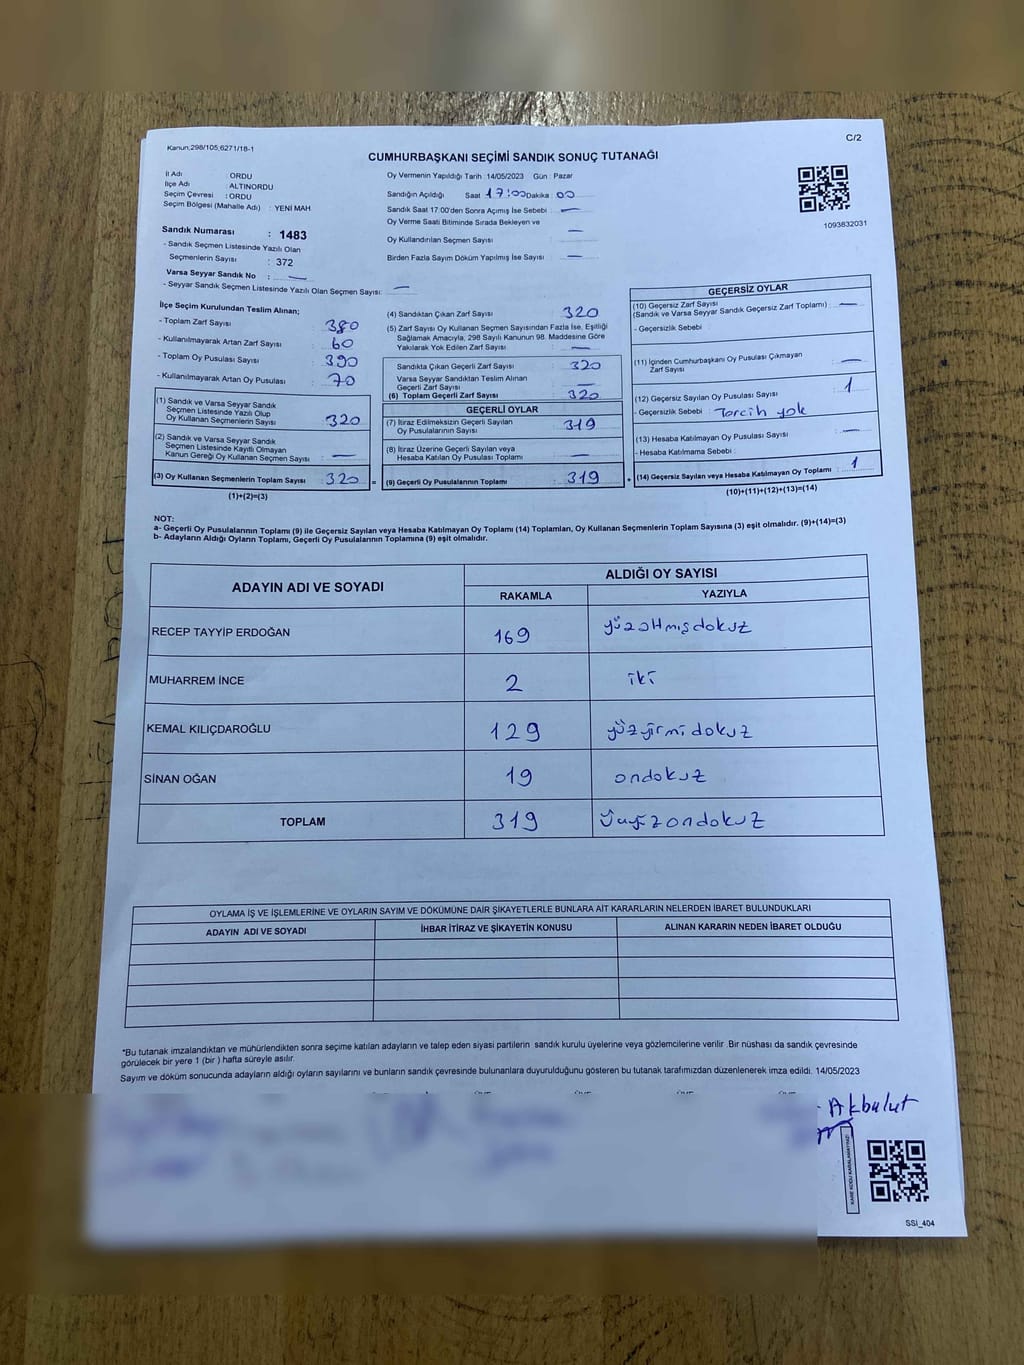 Kanun,298/105,6271/18-1
C/2
CUMHURBAŞKANI SEÇİMİ SANDIK SONUÇ TUTANAĞI
İl Adı : ORDU
İlçe Adı : ALTINORDU
Seçim Çevresi : ORDU
Seçim Bölgesi (Mahalle Adı) : YENİ MAH
Sandık Numarası : 1483
- Sandık Seçmen Listesinde Yazılı Olan
Seçmenlerin Sayısı : 372
Varsa Seyyar Sandık No : —
- Seyyar Sandık Seçmen Listesinde Yazılı Olan Seçmen Sayısı: —
Oy Vermenin Yapıldığı Tarih :14/05/2023 Gün : Pazar
Sandığın Açıldığı Saat 17:00 Dakika : 00
Sandık Saat 17:00'den Sonra Açımış İse Sebebi : —
Oy Verme Saati Bitiminde Sırada Bekleyen ve
Oy Kullandırılan Seçmen Sayısı : —
Birden Fazla Sayım Döküm Yapılmış İse Sayısı : —
1093832031
İlçe Seçim Kurulundan Teslim Alınan;
- Toplam Zarf Sayısı : 380
- Kullanılmayarak Artan Zarf Sayısı : 60
- Toplam Oy Pusulası Sayısı : 390
- Kullanılmayarak Artan Oy Pusulası : 70
(1) Sandık ve Varsa Seyyar Sandık
Seçmen Listesinde Yazılı Olup
Oy Kullanan Seçmenlerin Sayısı : 320
(2) Sandık ve Varsa Seyyar Sandık
Seçmen Listesinde Kayıtlı Olmayan
Kanun Gereği Oy Kullanan Seçmen Sayısı : —
(3) Oy Kullanan Seçmenlerin Toplam Sayısı : 320 =
(1)+(2)=(3)
(4) Sandıktan Çıkan Zarf Sayısı : 320
(5) Zarf Sayısı Oy Kullanan Seçmen Sayısından Fazla İse, Eşitliği
Sağlamak Amacıyla, 298 Sayılı Kanunun 98. Maddesine Göre
Yakılarak Yok Edilen Zarf Sayısı : —
Sandıkta Çıkan Geçerli Zarf Sayısı : 320
Varsa Seyyar Sandıktan Teslim Alınan
Geçerli Zarf Sayısı : —
(6) Toplam Geçerli Zarf Sayısı : 320
GEÇERLİ OYLAR
(7) İtiraz Edilmeksizin Geçerli Sayılan
Oy Pusulalarının Sayısı : 319
(8) İtiraz Üzerine Geçerli Sayılan veya
Hesaba Katılan Oy Pusulası Toplamı : —
(9) Geçerli Oy Pusulalarının Toplamı : 319 +
GEÇERSİZ OYLAR
(10) Geçersiz Zarf Sayısı
(Sandık ve Varsa Seyyar Sandık Geçersiz Zarf Toplamı) : —
- Geçersizlik Sebebi :
(11) İçinden Cumhurbaşkanı Oy Pusulası Çıkmayan
Zarf Sayısı : —
(12) Geçersiz Sayılan Oy Pusulası Sayısı : 1
- Geçersizlik Sebebi : Tercih yok
(13) Hesaba Katılmayan Oy Pusulası Sayısı : —
- Hesaba Katılmama Sebebi :
(14) Geçersiz Sayılan veya Hesaba Katılmayan Oy Toplamı : 1
(10)+(11)+(12)+(13)=(14)
NOT:
a- Geçerli Oy Pusulalarının Toplamı (9) ile Geçersiz Sayılan veya Hesaba Katılmayan Oy Toplamı (14) Toplamları, Oy Kullanan Seçmenlerin Toplam Sayısına (3) eşit olmalıdır. (9)+(14)=(3)
b- Adayların Aldığı Oyların Toplamı, Geçerli Oy Pusulalarının Toplamına (9) eşit olmalıdır.
ADAYIN ADI VE SOYADI
ALDIĞI OY SAYISI
RAKAMLA YAZIYLA
RECEP TAYYİP ERDOĞAN 169 yüzaltmışdokuz
MUHARREM İNCE 2 iki
KEMAL KILIÇDAROĞLU 129 yüzyirmidokuz
SİNAN OĞAN 19 ondokuz
TOPLAM 319 üçyüzondokuz
OYLAMA İŞ VE İŞLEMLERİNE VE OYLARIN SAYIM VE DÖKÜMÜNE DAİR ŞİKAYETLERLE BUNLARA AİT KARARLARIN NELERDEN İBARET BULUNDUKLARI
ADAYIN ADI VE SOYADI İHBAR İTİRAZ VE ŞİKAYETİN KONUSU ALINAN KARARIN NEDEN İBARET OLDUĞU
"Bu tutanak imzalandıktan ve mühürlendikten sonra seçime katılan adayların ve talep eden siyasi partilerin sandık kurulu üyelerine veya gözlemcilerine verilir .Bir nüshası da sandık çevresinde
görülecek bir yere 1 (bir ) hafta süreyle asılır.
Sayım ve döküm sonucunda adayların aldığı oyların sayılarını ve bunların sandık çevresinde bulunanlara duyurulduğunu gösteren bu tutanak tarafımızdan düzenlenerek imza edildi. 14/05/2023
Akbulut
KARE KODU KARALAMAYINIZ!
SSİ_404